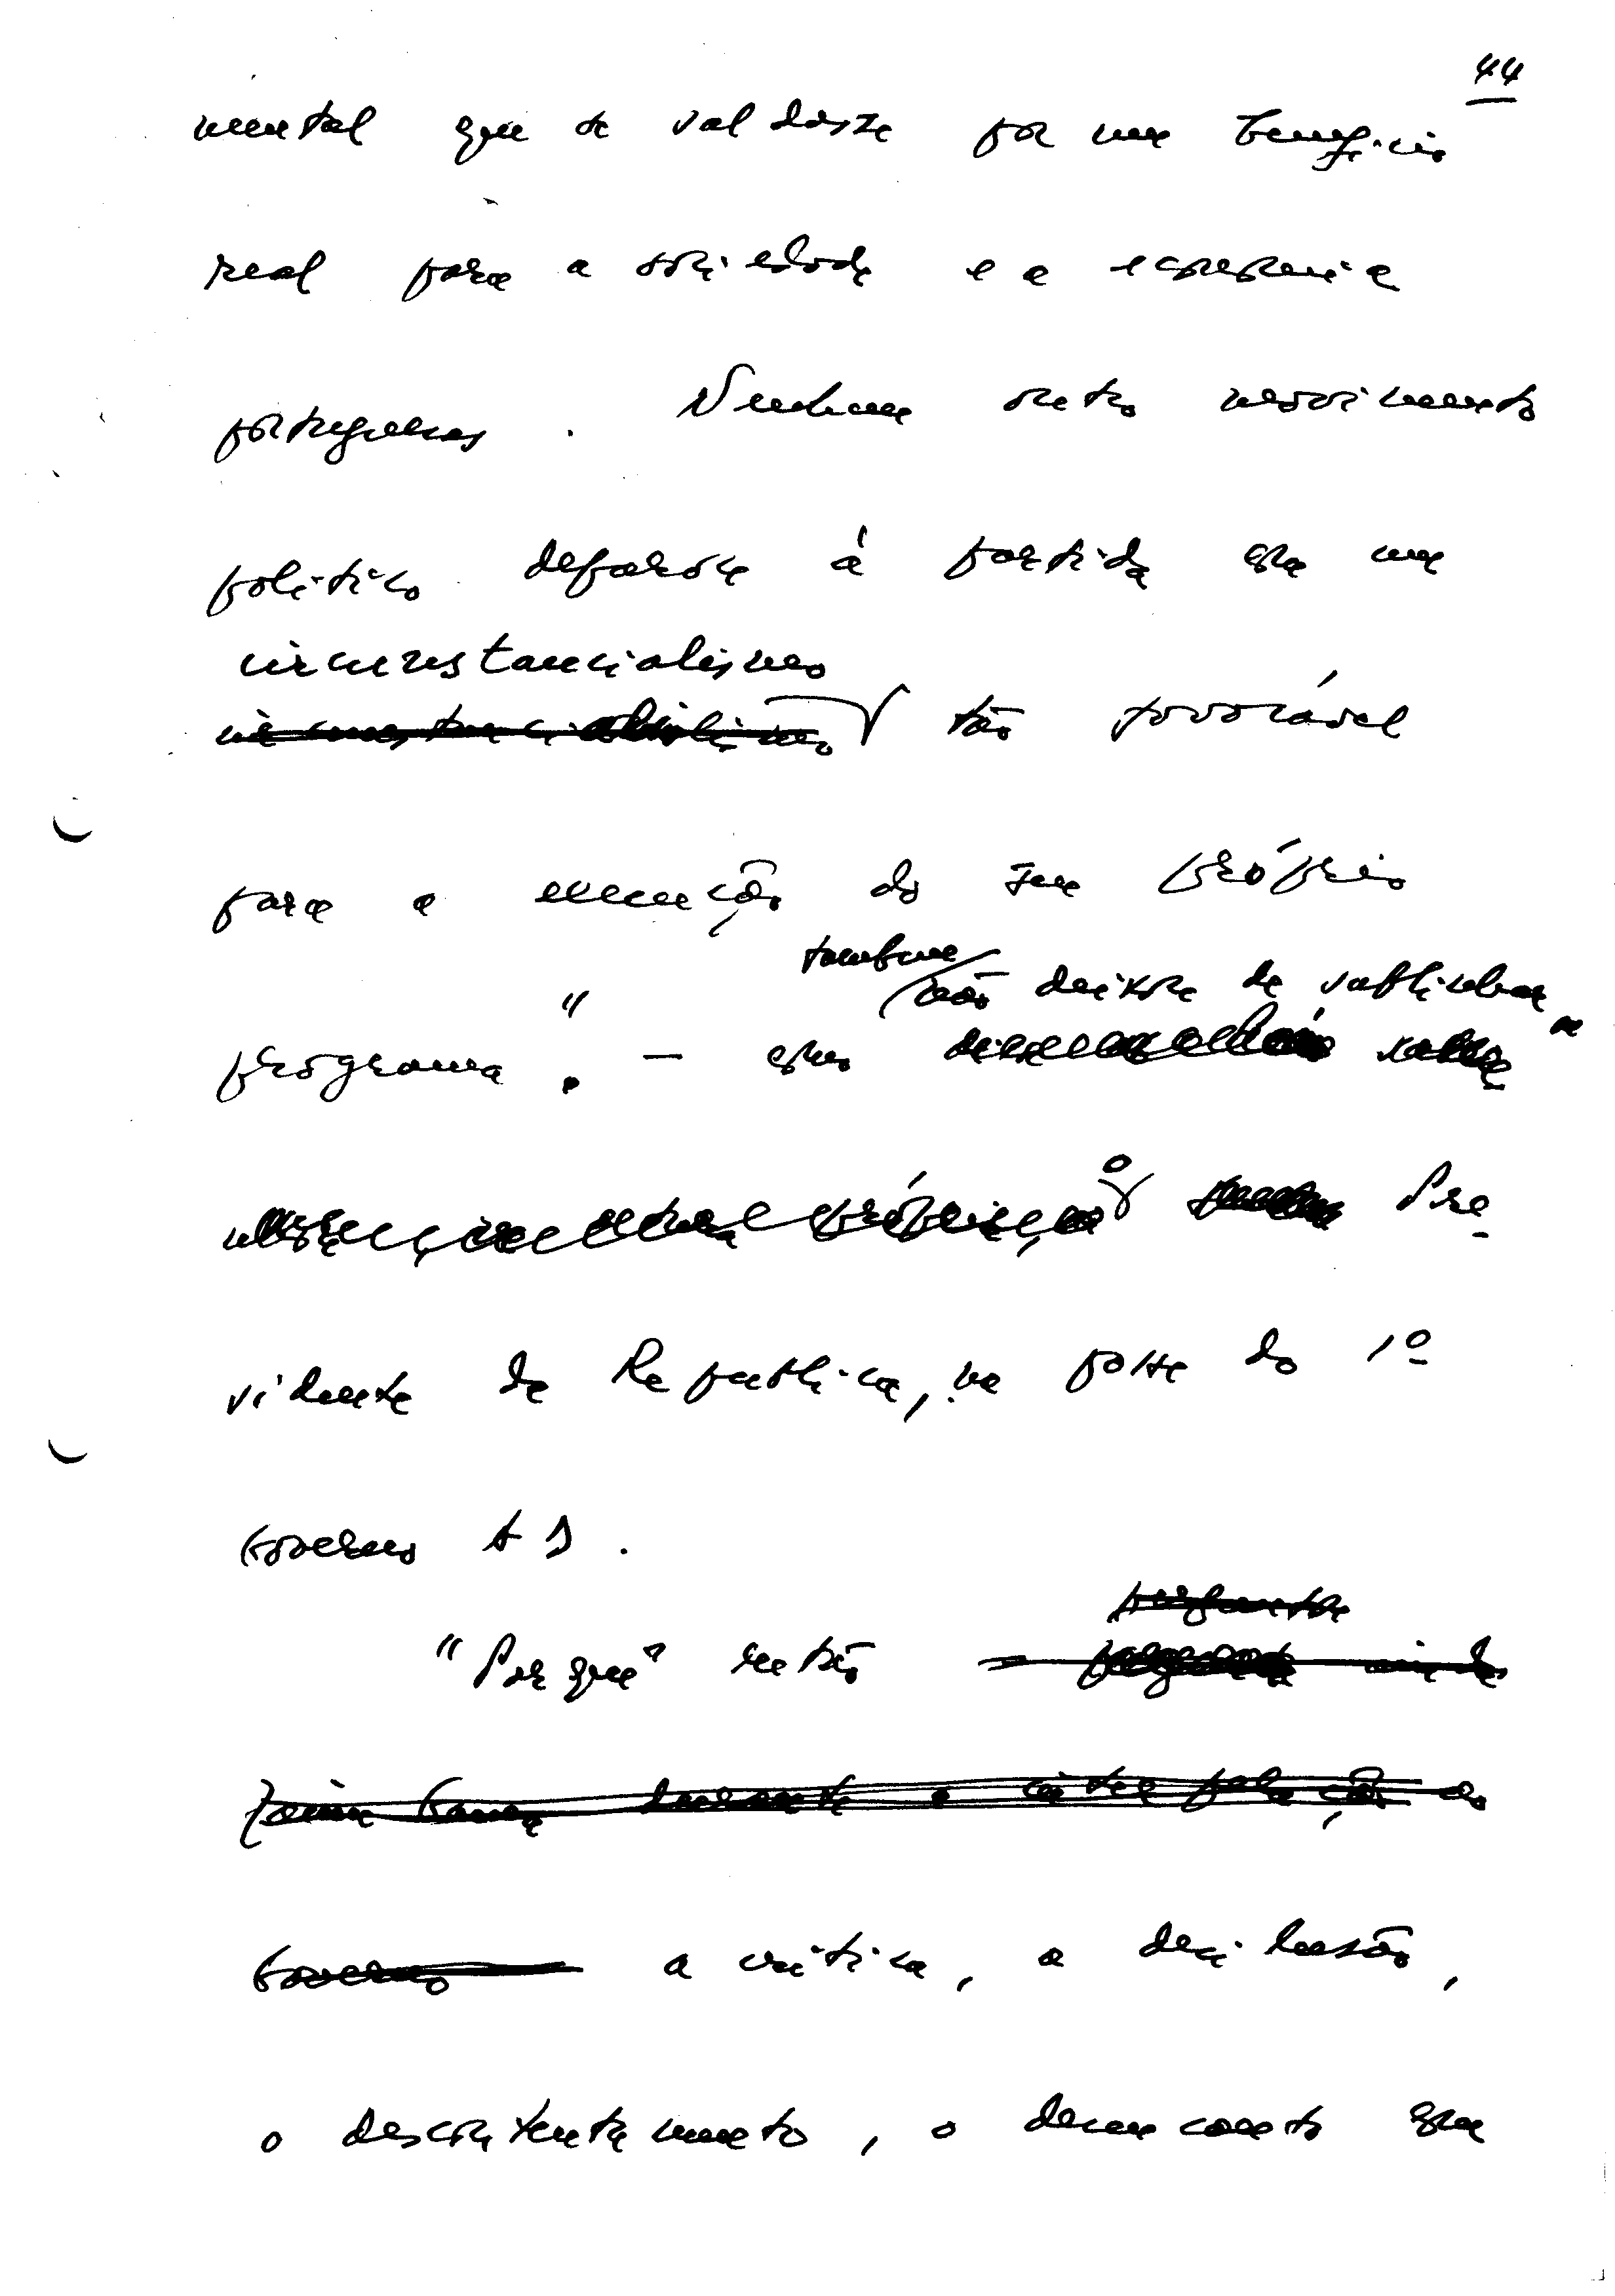 44
mental que se saldasse por um benefício
real para a sociedade e a economia
portuguesas. Nenhum outro movimento
politico deparou à partida com um
circunstancialismo
tão favorável
para a execução do seu próprio
também
não deixou de sublinhar
programa". —
o Pre-
sidente da Republica, na posse do 1º
Governo AD.
"Porquê" então
Governo a critica, a desilusão,
o descontentamento, o desencanto que